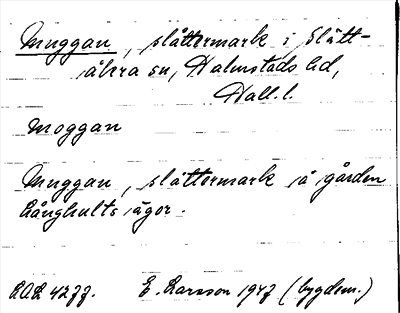 Muggan, slåttermark i Slätt-
åkra sn, Halmstads hd,
Hall. l.
moggan
Muggan, slåttermark å gården
Långhults ägor.
LAL 4277. E. Larsson 1947 (bygdem.)